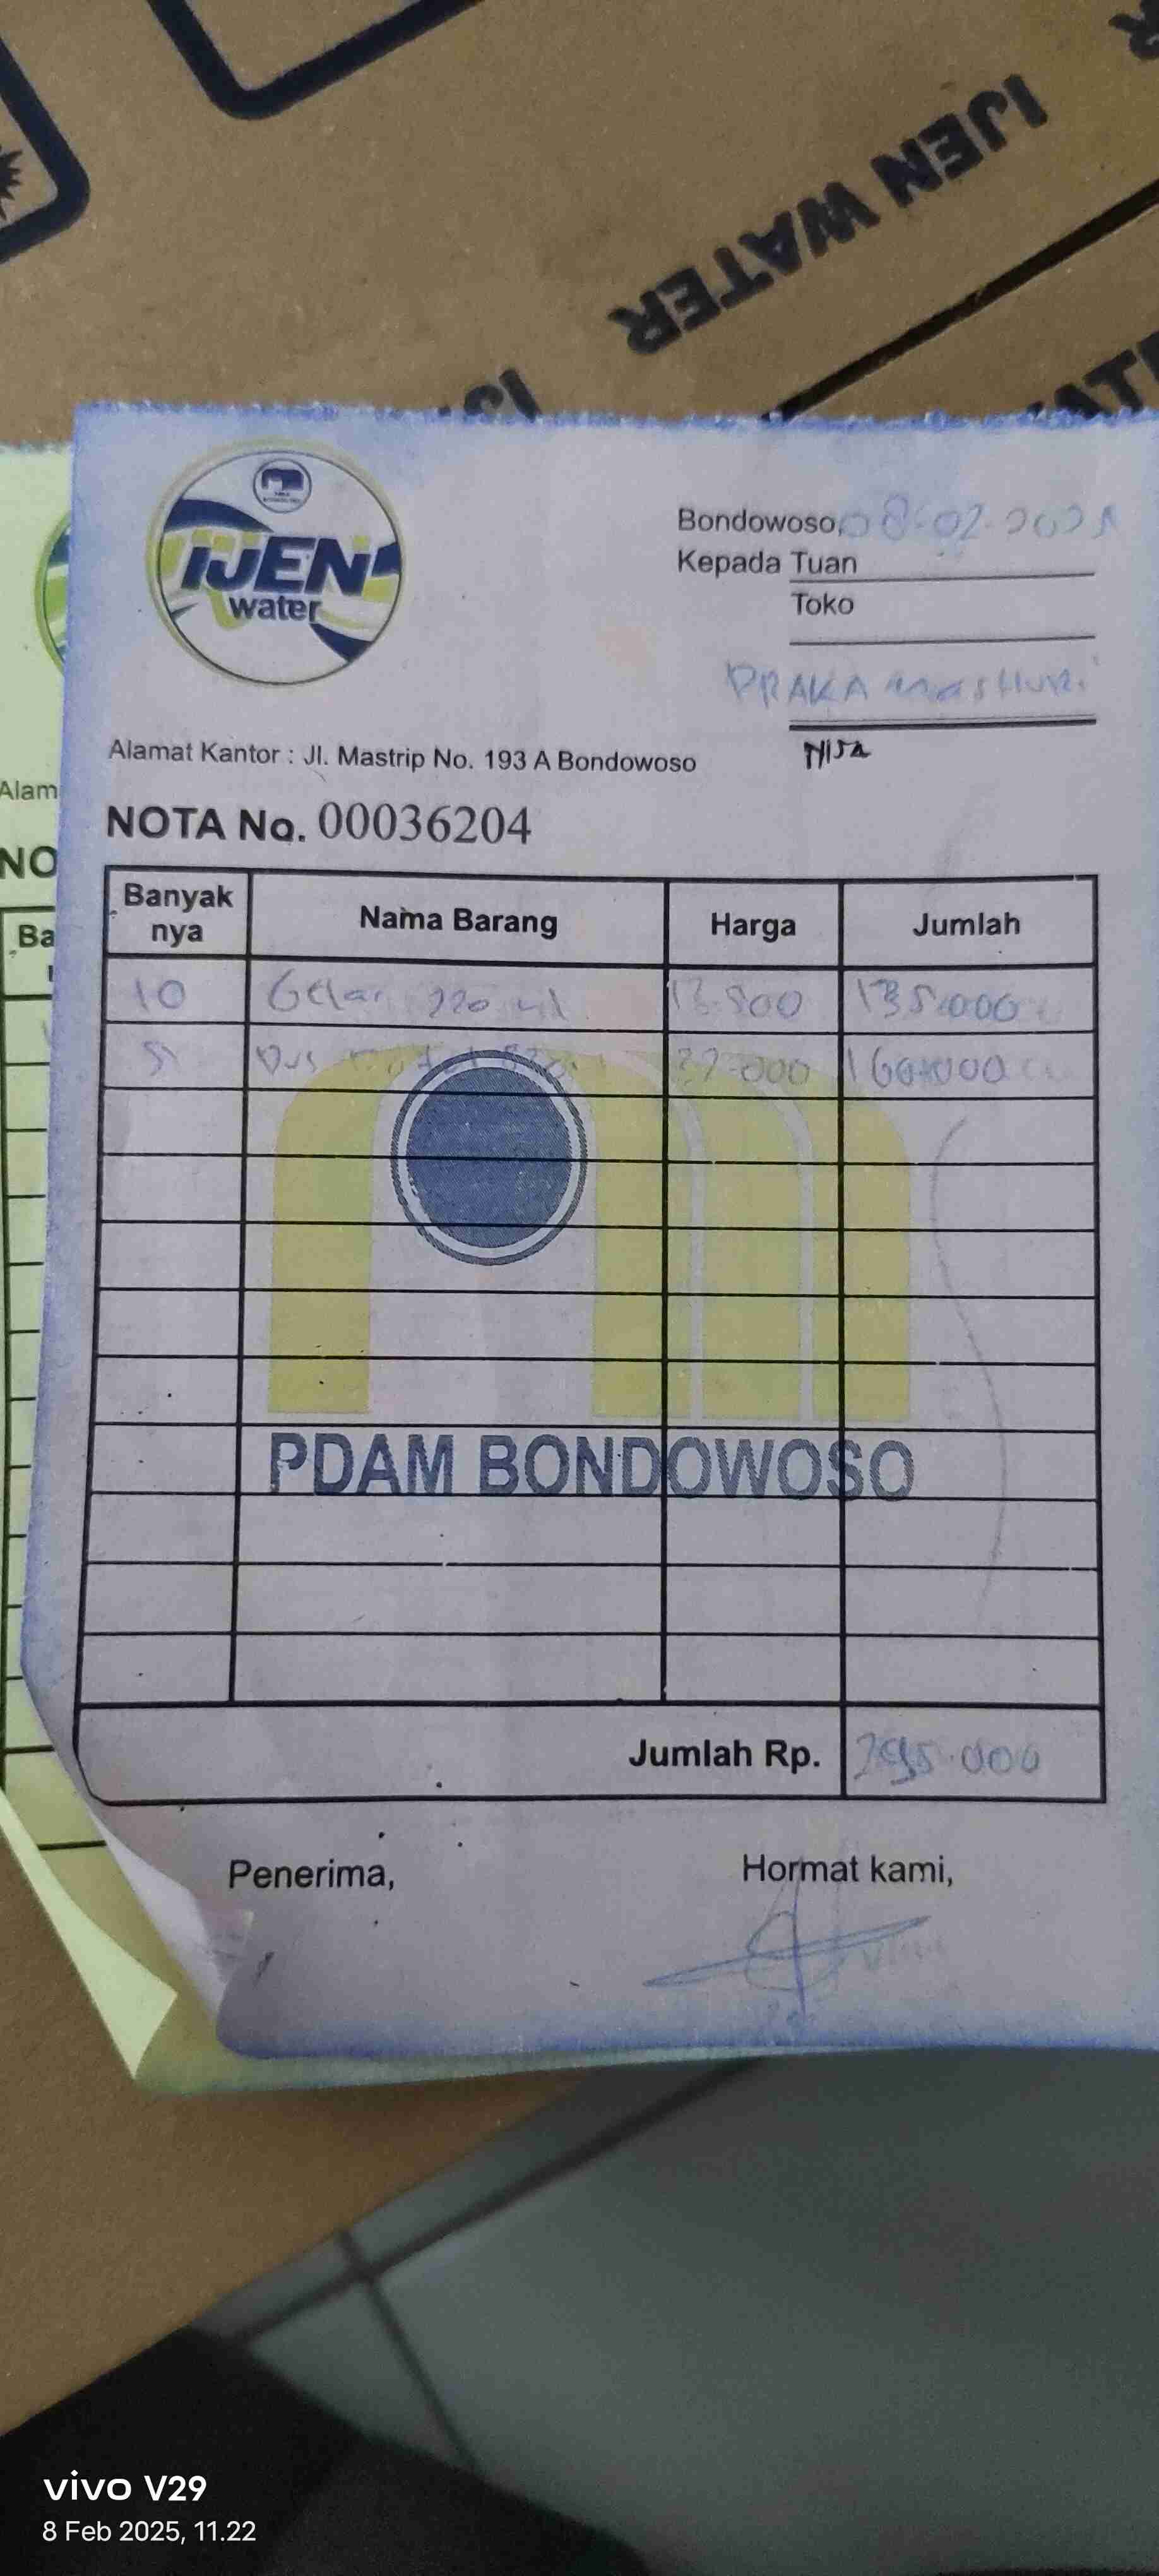 IJEN WATER
IJEN
water
Bondowoso, 08-02-2025
Kepada Tuan
Toko
PRAKA masHuri
Nisa
Alamat Kantor : Jl. Mastrip No. 193 A Bondowoso
Alam
NOTA No. 00036204
NO
Banyak nya Nama Barang Harga Jumlah
Ba
10 Gelas 220 ml 13.500 135.000
5 Dus 32.000 160.000
PDAM BONDOWOSO
Jumlah Rp. 295.000
Penerima, Hormat kami,
vivo V29
8 Feb 2025, 11.22